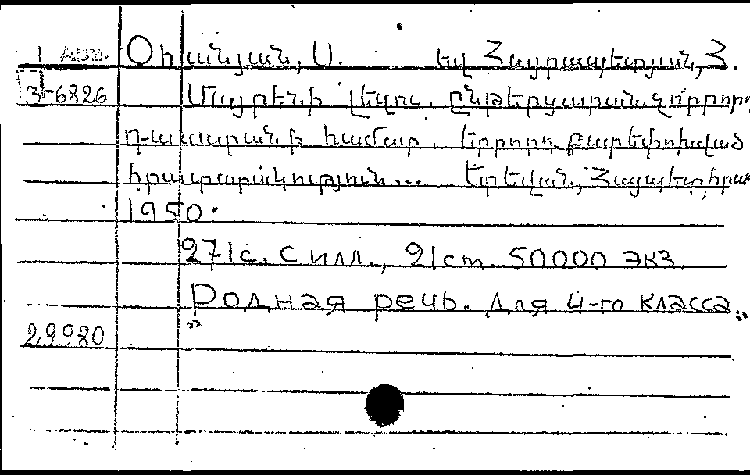 1 Арм. Օհանյան, Ս. եվ Հայրապետյան, Հ.
3-6826 Մայրենի լեզու. ընթերցարան չորրորդ
դասարանի համար. երրորդ բարեփոխված
հրատարակություն... Երեվան, Հայպետհրատ
1950.
271с. с илл., 21 cm. 50000 экз.
„Родная речь. Для 4-го класса„
29980